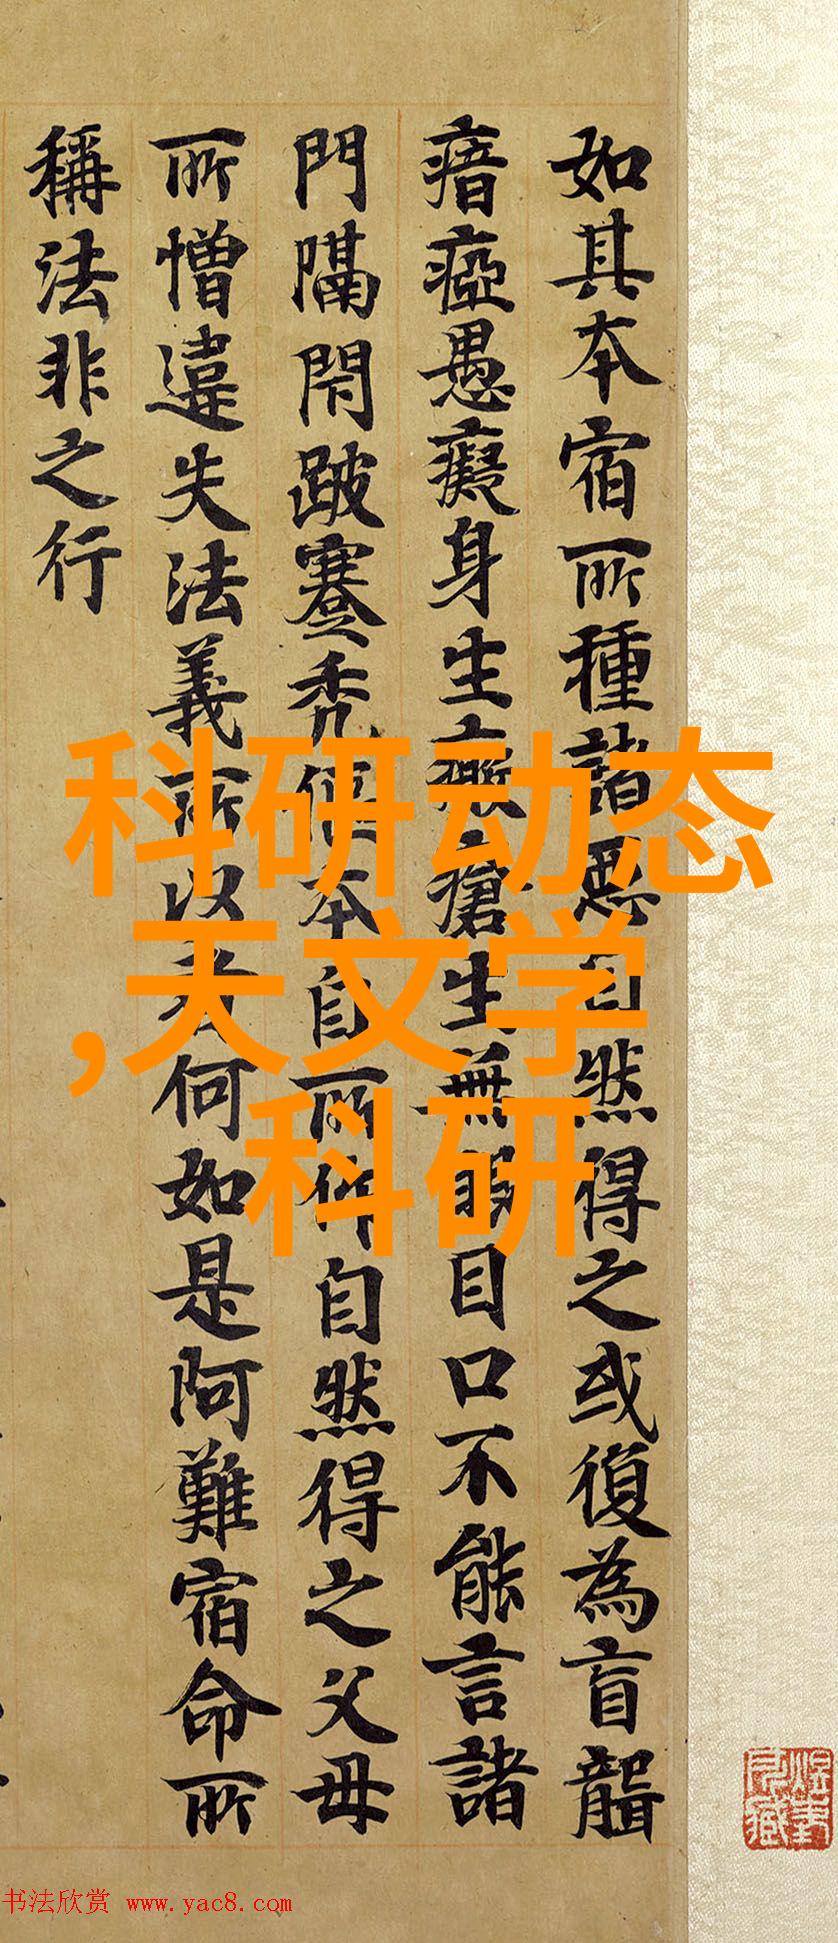 如其本宿所種諸惡自然得之或復為盲聾
瘖瘂愚癡身生癥瘡生無眼目口不能言諸
門隔閇跛蹇秃僂本自所作自然得之父母
所憎違失法義所以者何如是阿難宿命所
稱法非之行
科研动态
,天文学
科研
书法欣赏 www.yac8.com